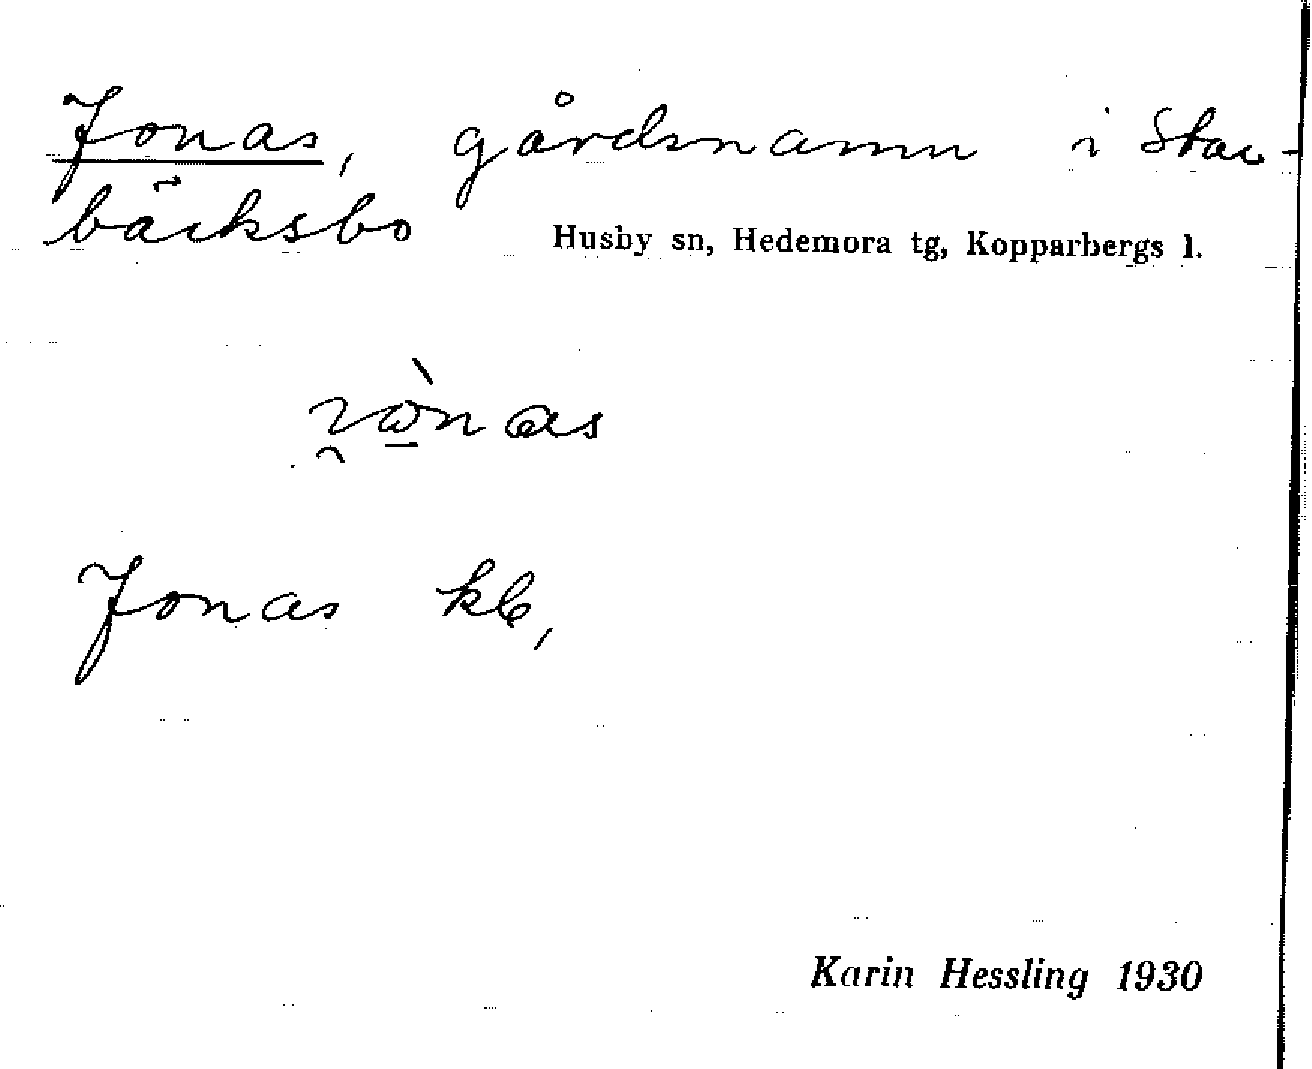 Jonas, gårdsnamn i Stav-
bäcksbo Husby sn, Hedemora tg, Kopparbergs l.
Jonas kb,
Karin Hessling 1930